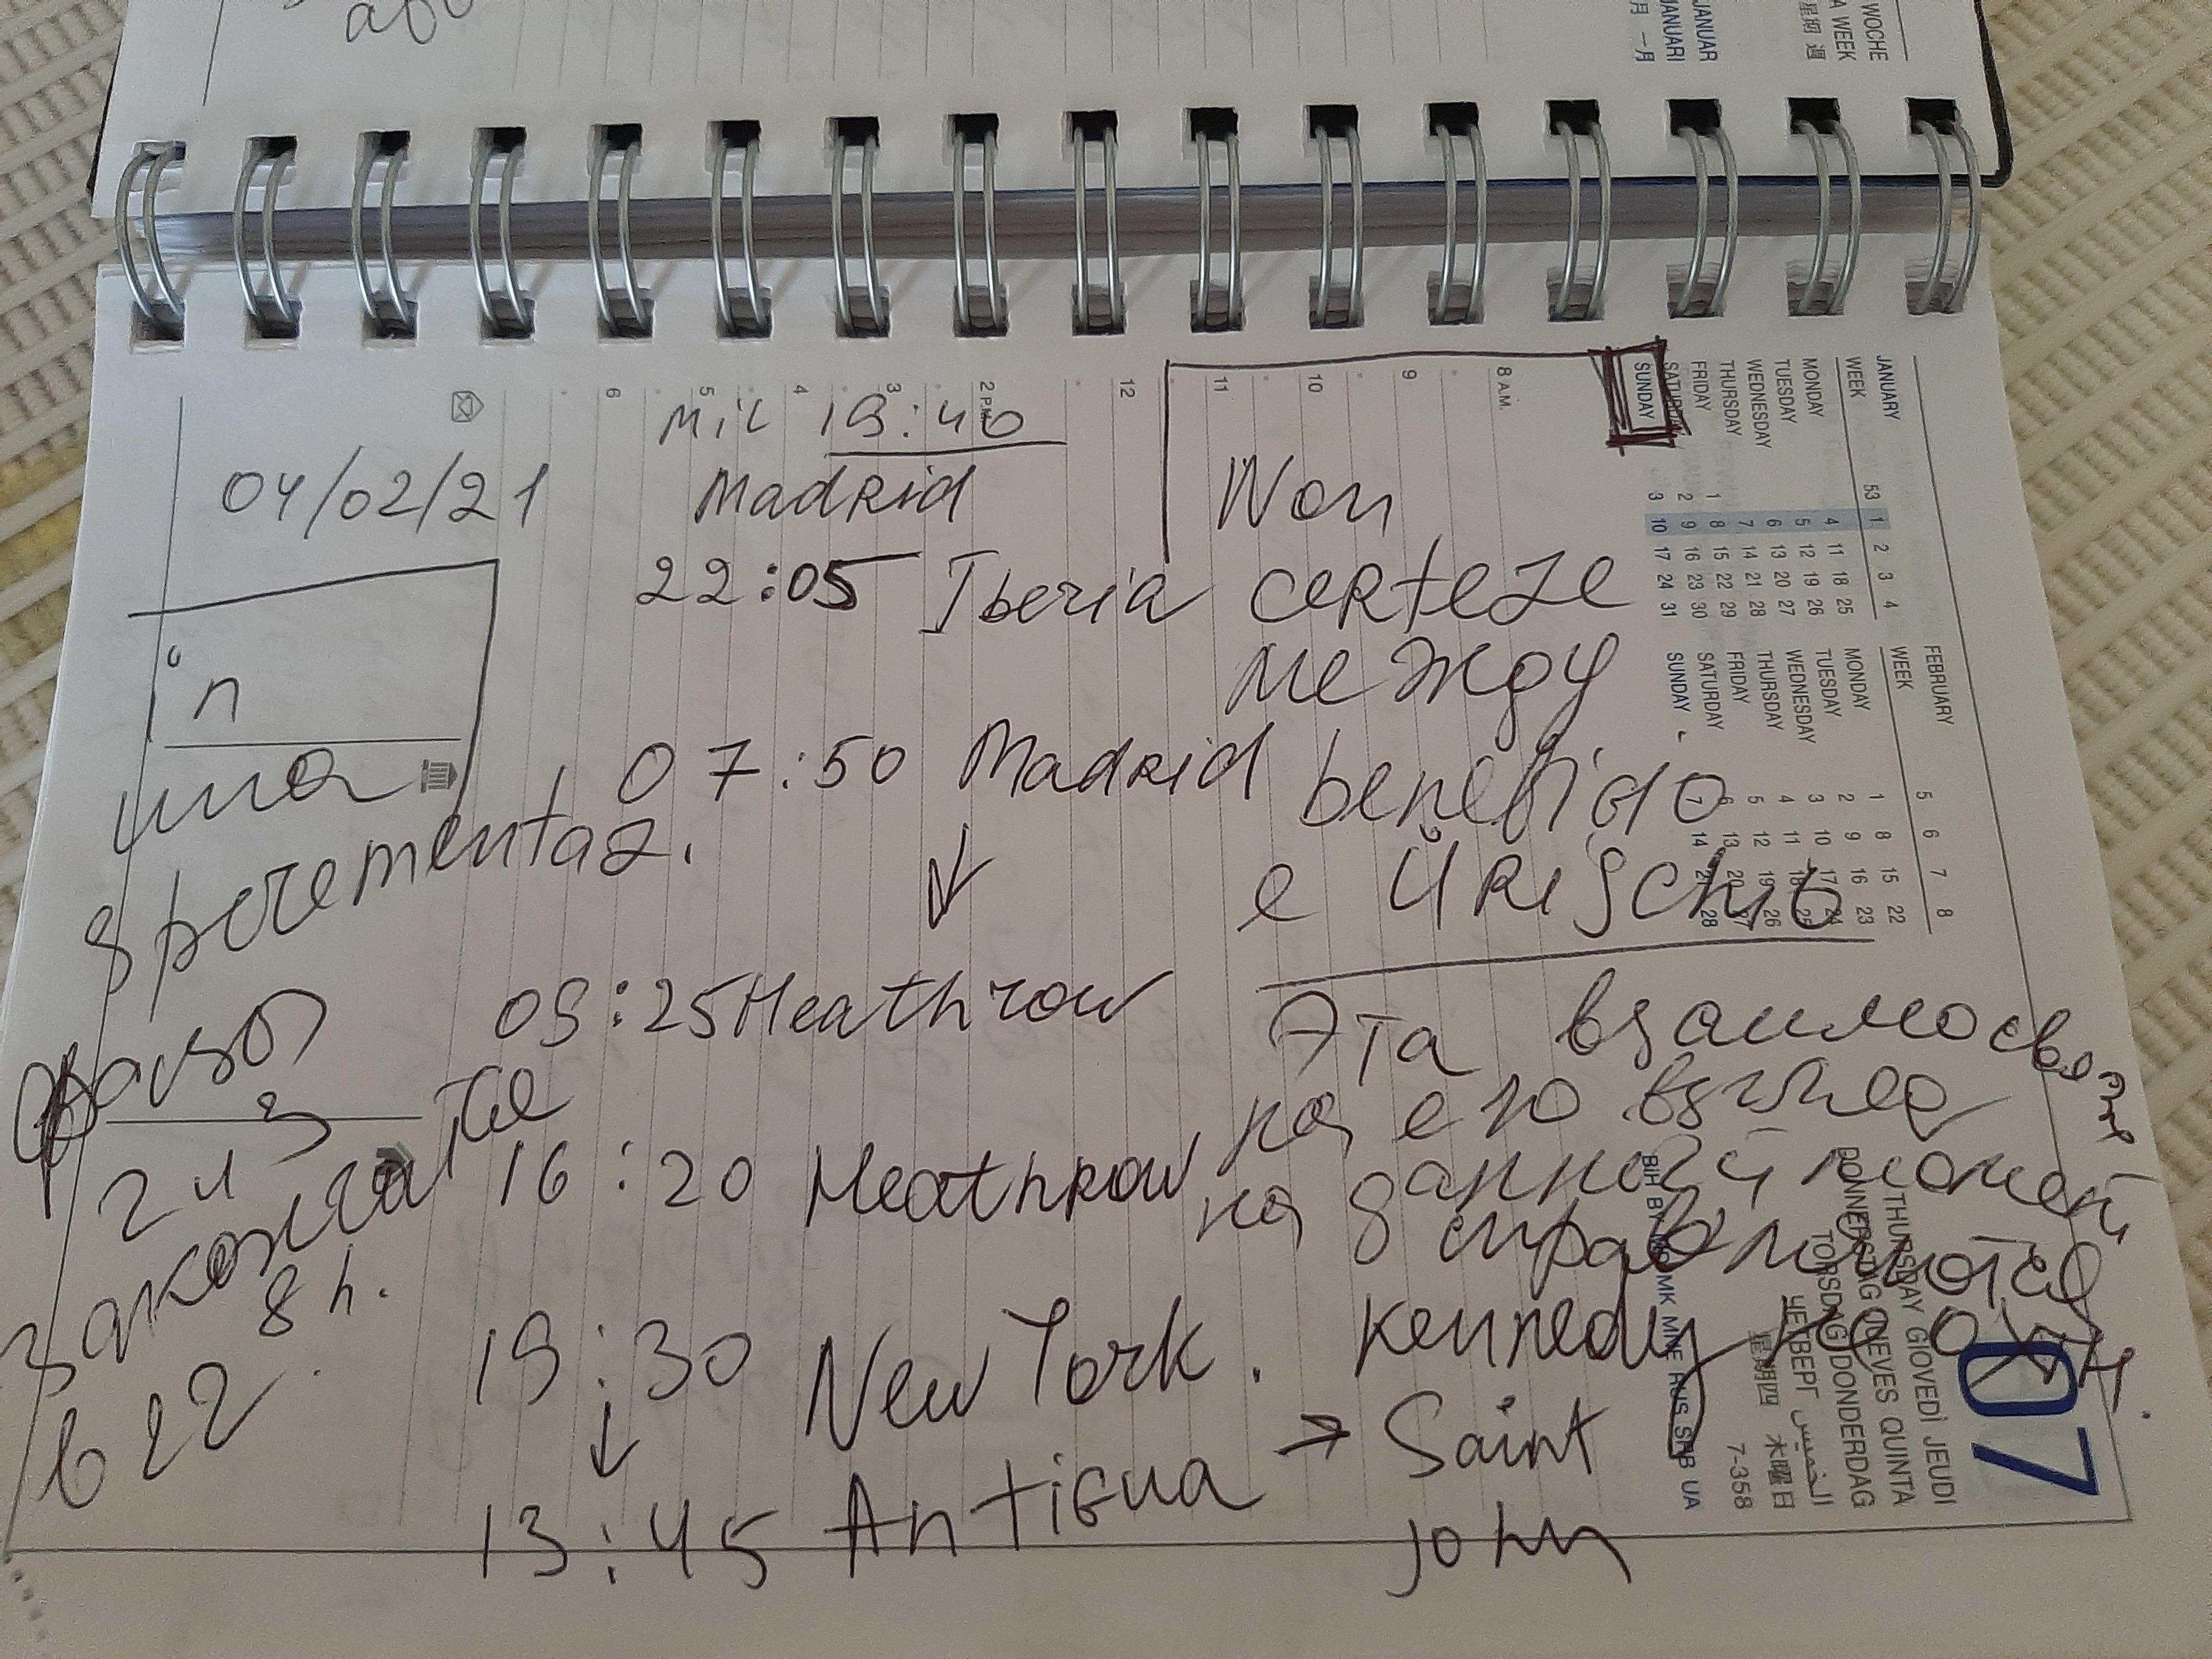 Mil 19:40
04/02/21
Madrid
22:05 Iberia
07:50 Madrid
↓
09:25 Heathrow
16:20 Heathrow
19:30 New York. Kennedy
↓
13:45 Antigua → Saint
John
Non
certeze
между
beneficio
e il rischio
Эта взаимосвязь
на его взгляд
на данный момент
in
una
sperementaz.
фаза
2 и 3
заканчивается
в 22
8 A.M.
9
10
11
12
2 P.M.
3
4
5
6
JANUARY
WEEK 53 1 2 3 4
MONDAY 4 11 18 25
TUESDAY 5 12 19 26
WEDNESDAY 6 13 20 27
THURSDAY 7 14 21 28
FRIDAY 1 8 15 22 29
SATURDAY 2 9 16 23 30
SUNDAY 3 10 17 24 31
FEBRUARY
WEEK 5 6 7 8
MONDAY 1 8 15 22
TUESDAY 2 9 16 23
WEDNESDAY 3 10 17 24
THURSDAY 4 11 18 25
FRIDAY 5 12 19 26
SATURDAY 6 13 20 27
SUNDAY 7 14 21 28
07
THURSDAY GIOVEDÌ JEUDI
DONNERSTAG JUEVES QUINTA
TORSDAG DONDERDAG
ЧЕТВЕРГ الخميس
星期四 木曜日
7-358
WOCHE
A WEEK
星期 週
JANUAR
JANUARI
月 一月